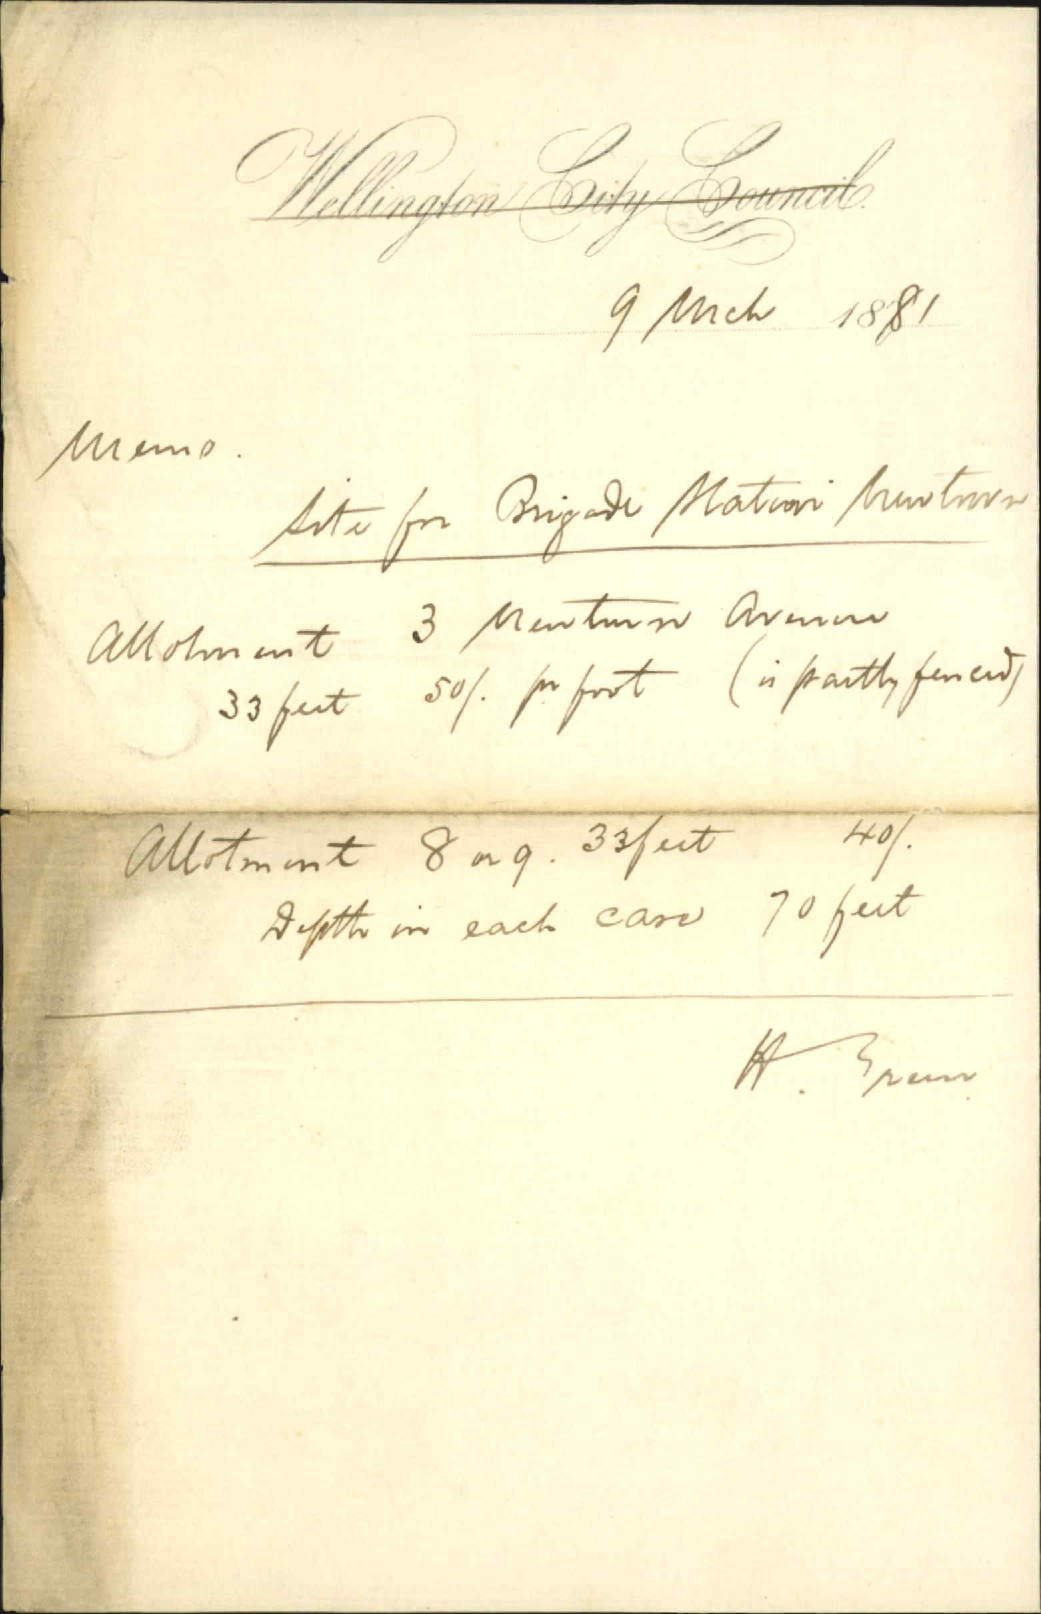 Wellington City Council.
9 Mch 1881
Memo.
Site for Brigade Station Newtown
Allotment 3 Newtown Avenue
33 feet 50/. pr foot (is partly fenced)
Allotment 8 or 9. 33 feet 40/.
Depth in each case 70 feet
H.